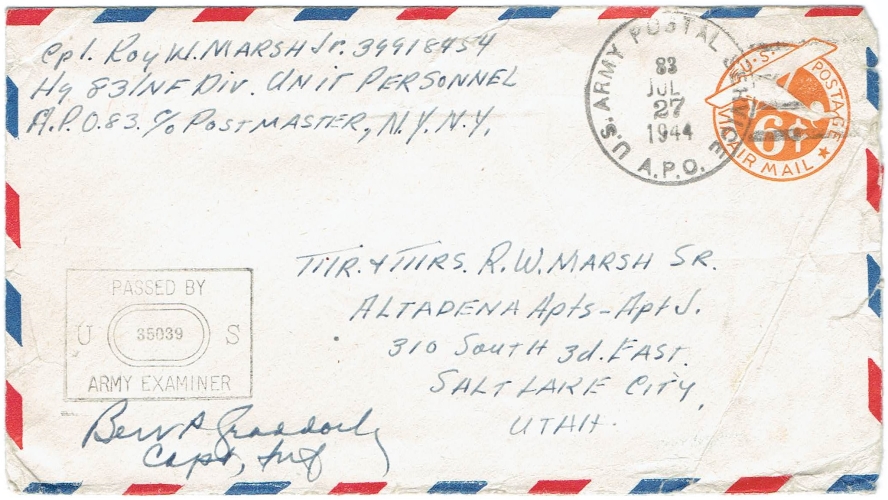 Cpl. Roy W. MARSH Jr. 39918454
Hq 83 INF DIV. UNIT PERSONNEL
A.P.O. 83. c/o POSTMASTER, N.Y. N.Y.
U.S. ARMY POSTAL SERVICE
A.P.O.
83
JUL
27
1944
U.S. POSTAGE
6¢
VIA AIR MAIL
MR. & MRS. R.W. MARSH SR.
ALTADENA Apts-Apt J.
310 SOUTH 3d. EAST.
SALT LAKE CITY,
UTAH.
PASSED BY
U 35039 S
ARMY EXAMINER
Capt, Inf